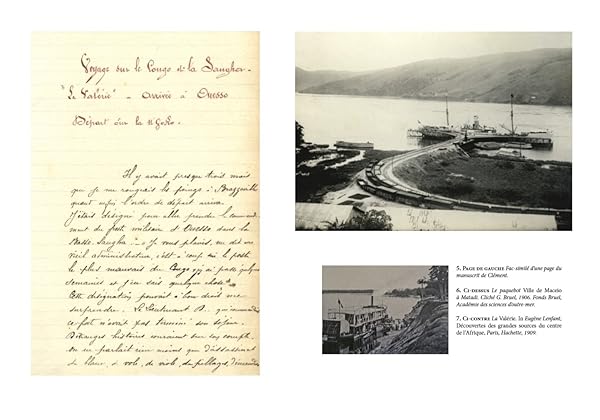 Voyage sur le Congo et la Sangha -
"Le Valérie" - Arrivée à Ouesso
Départ sur la N'Goko.
Il y avait presque trois mois
que je me rongeais les poings à Brazzaville
quand enfin l'ordre de départ arriva.
J'étais désigné pour aller prendre le comman-
dement du poste militaire d'Ouesso dans la
Basse-Sangha. - Je vous plains, me dit un
vieil administrateur, c'est à coup sûr le poste
le plus mauvais du Congo, j'y ai passé quelques
semaines et j'en sais quelque chose"
Cette désignation pouvait à bon droit me
surprendre. Le Lieutenant B. qui commandait
ce poste n'avait pas terminé son séjour.
D'étranges histoires couraient sur son compte.
on ne parlait rien moins que d'assassinat
de blanc, de vols, de viols, de pillages, d'incendies
5. PAGE DE GAUCHE Fac-similé d'une page du
manuscrit de Clément.
6. CI-DESSUS Le paquebot Ville de Maceio
à Matadi. Cliché G. Bruel, 1906. Fonds Bruel,
Académie des sciences d'outre-mer.
7. CI-CONTRE La Valérie. In Eugène Lenfant,
Découvertes des grandes sources du centre
de l'Afrique, Paris, Hachette, 1909.